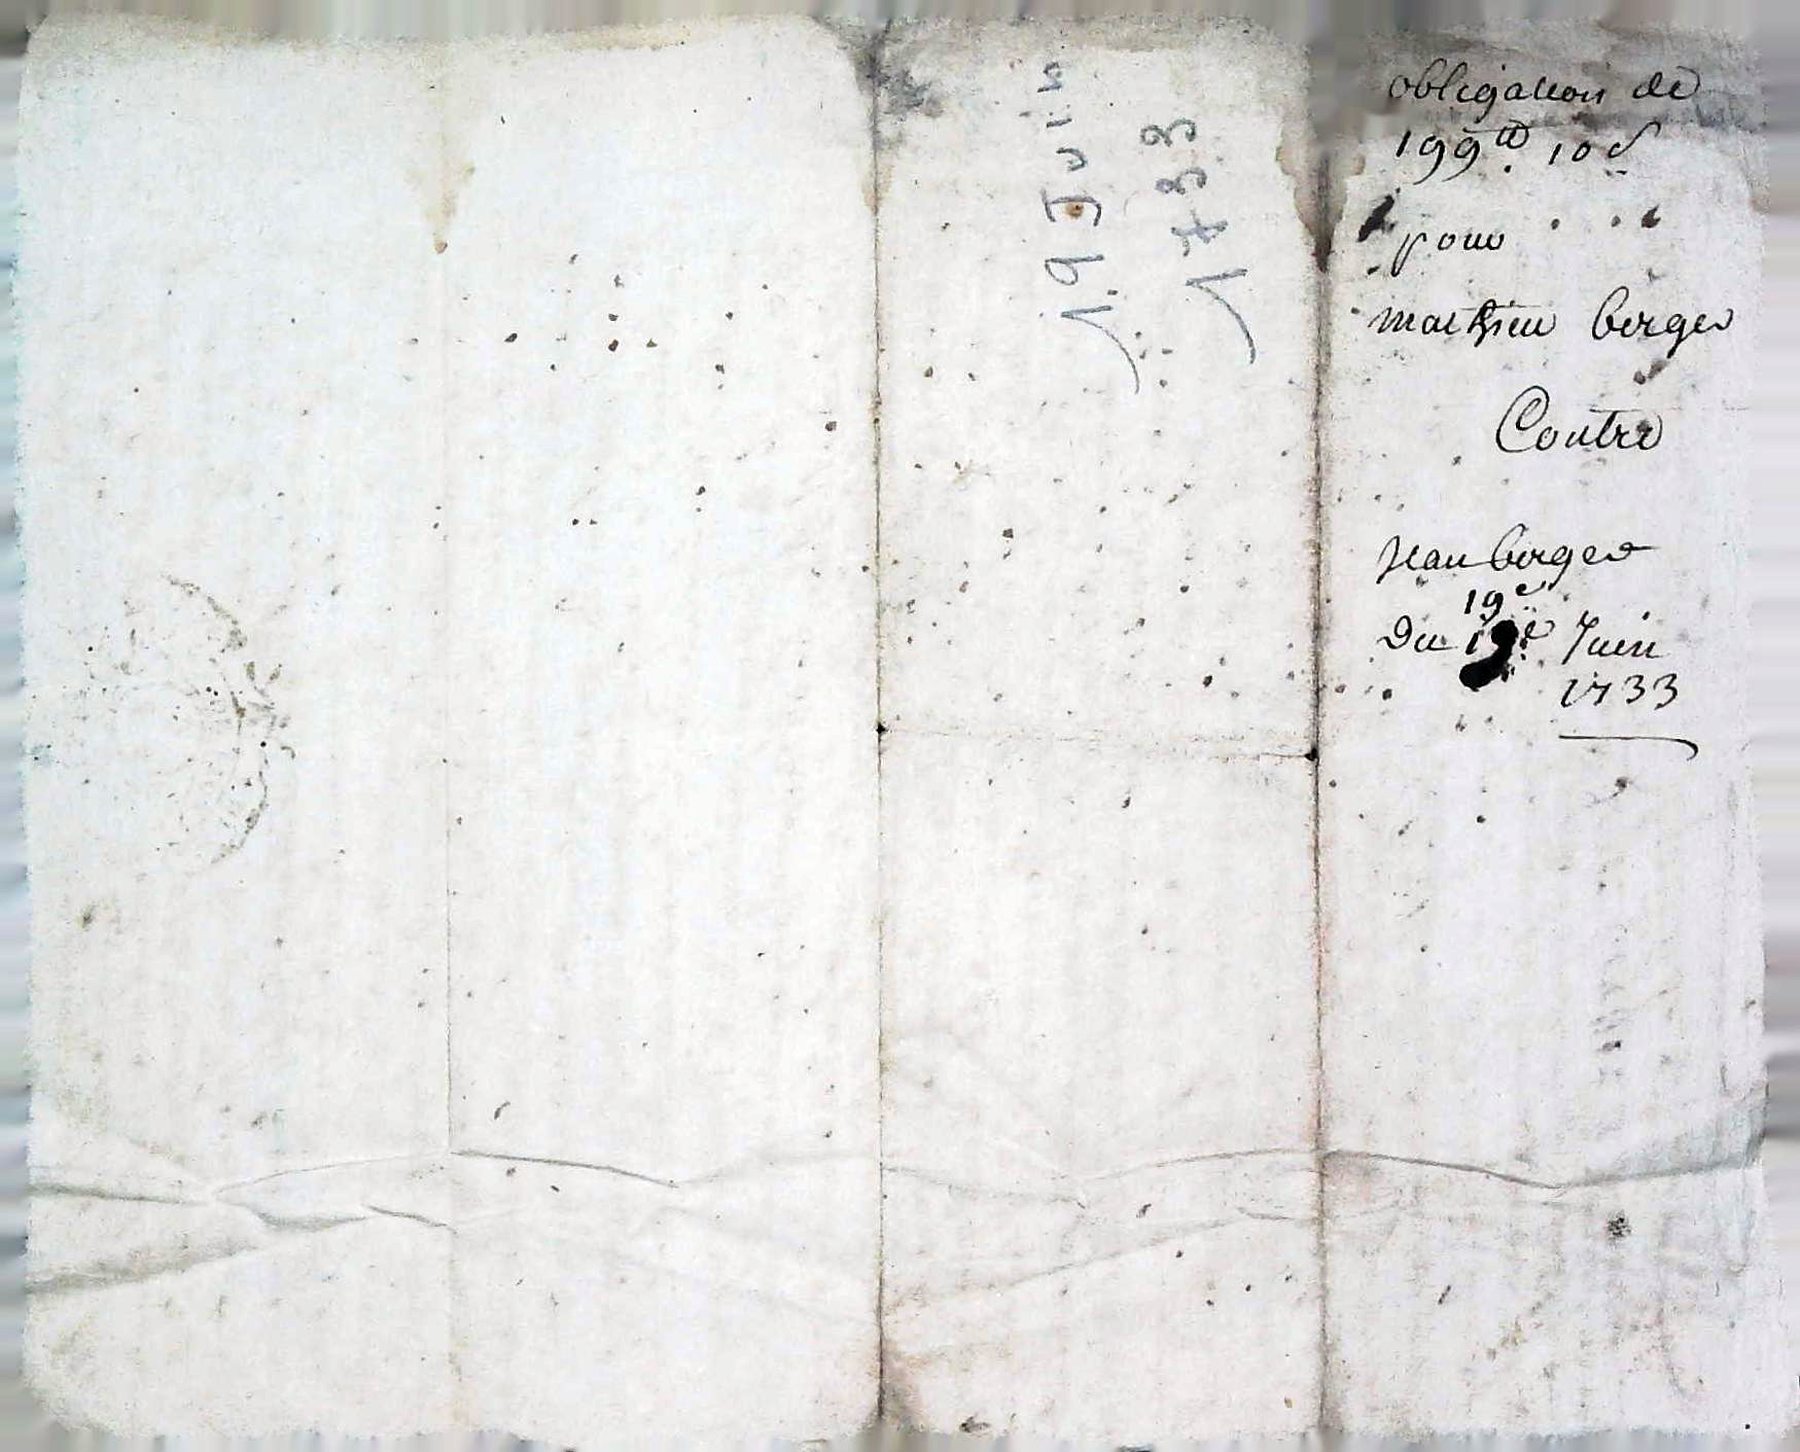 19 Juin
1733
obligation de
199ᵗᵗ 10 s
pour
mathieu berger
Contre
Jean berger
19e
Du 19e Juin
1733